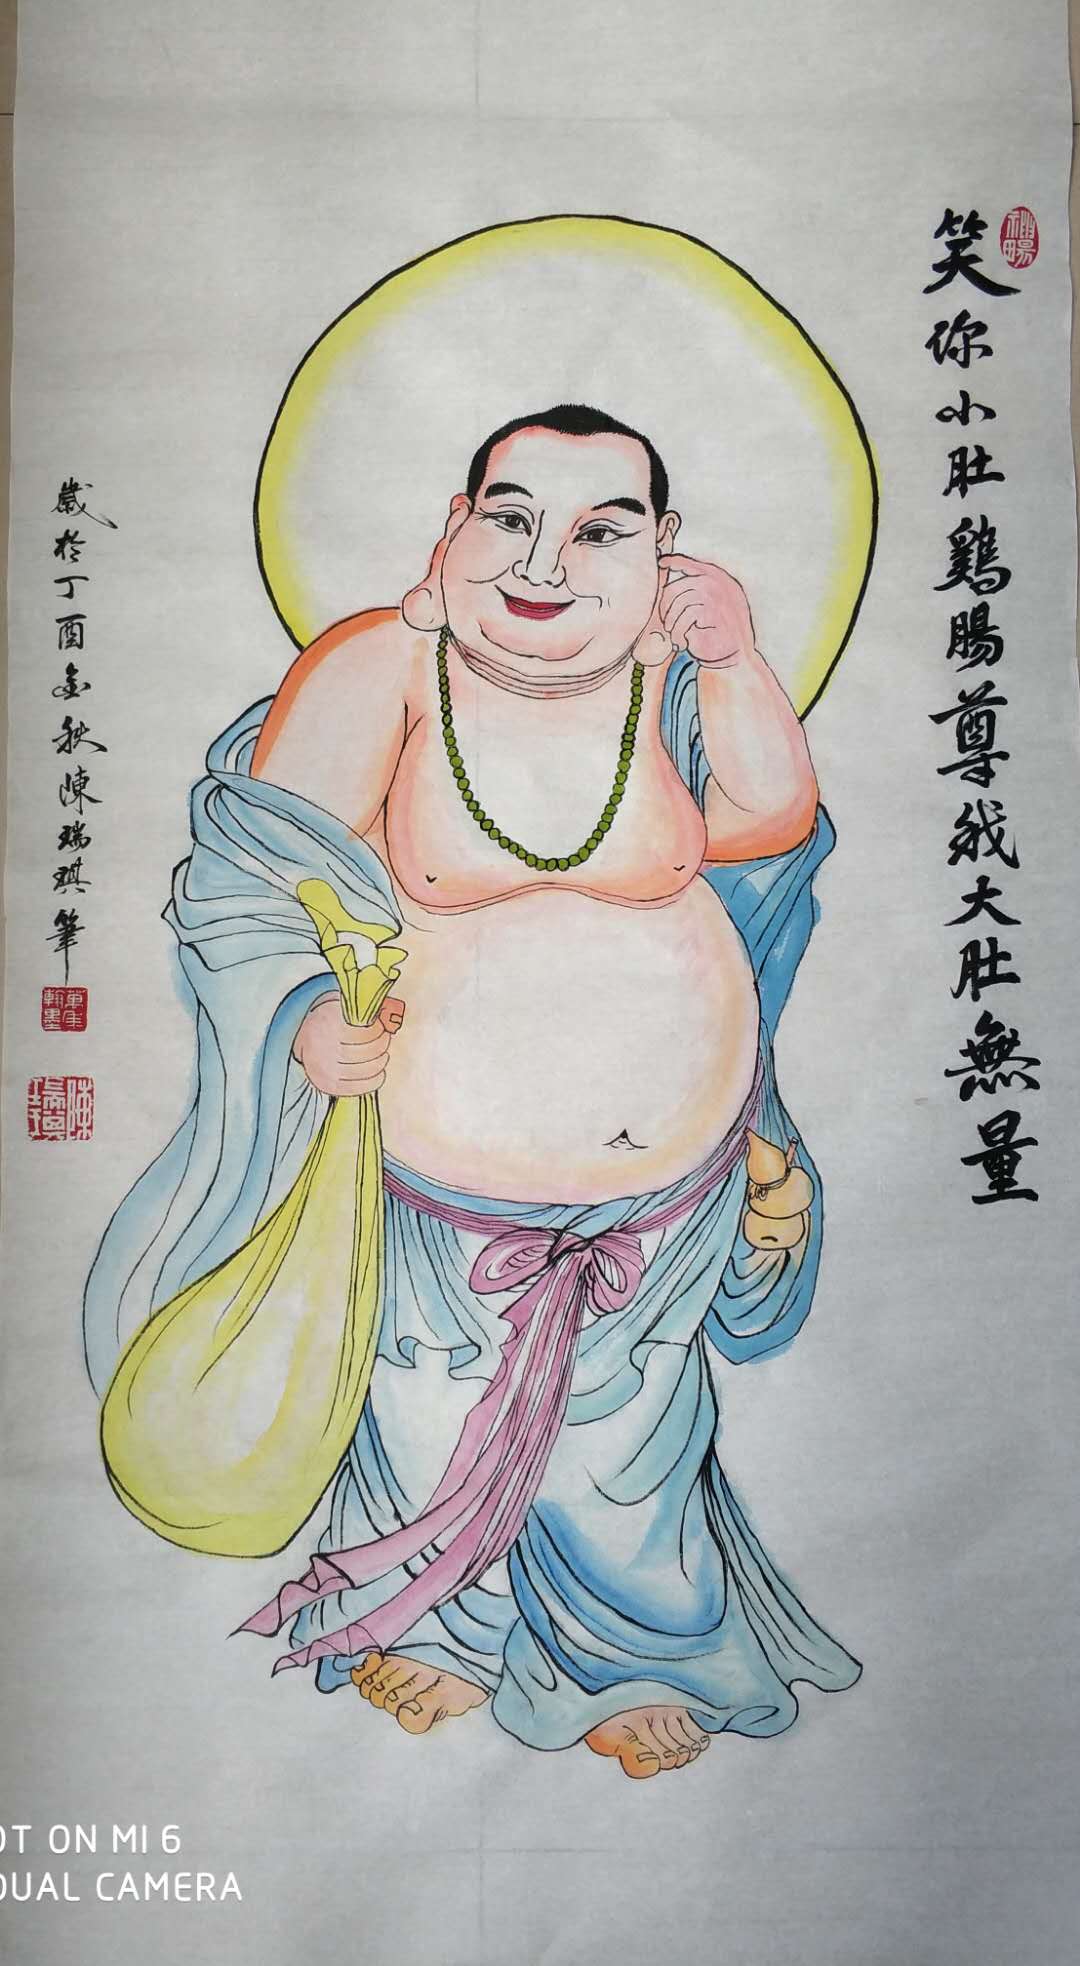 笑你小肚鷄腸尊我大肚無量
歲於丁酉金秋陳瑞琪筆
萬年翰墨
陳瑞琪
OT ON MI 6
DUAL CAMERA